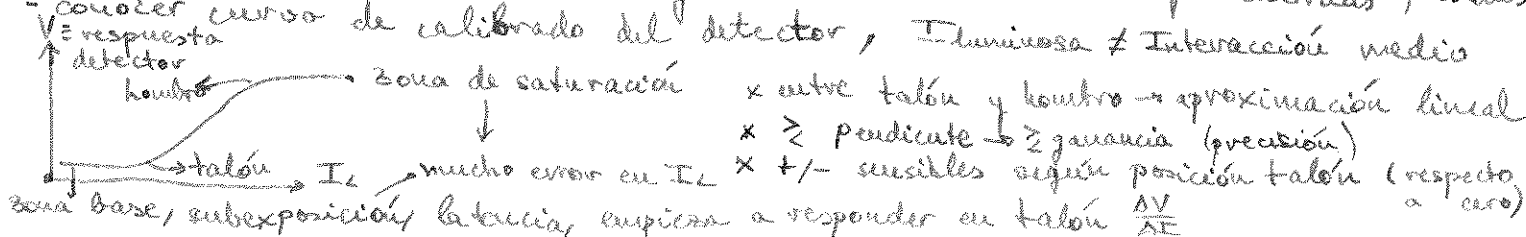 - conocer curva de calibrado del detector, I luminosa ≠ Interacción medio
V ≡ respuesta
detector
hombro
zona de saturación
x entre talón y hombro → aproximación lineal
x ≥ pendiente → ≥ ganancia (precisión)
talón
I_L
mucho error en I_L
x +/- sensibles según posición talón (respecto
a cero)
zona Base, subexposición, latencia, empieza a responder en talón ΔV/ΔI